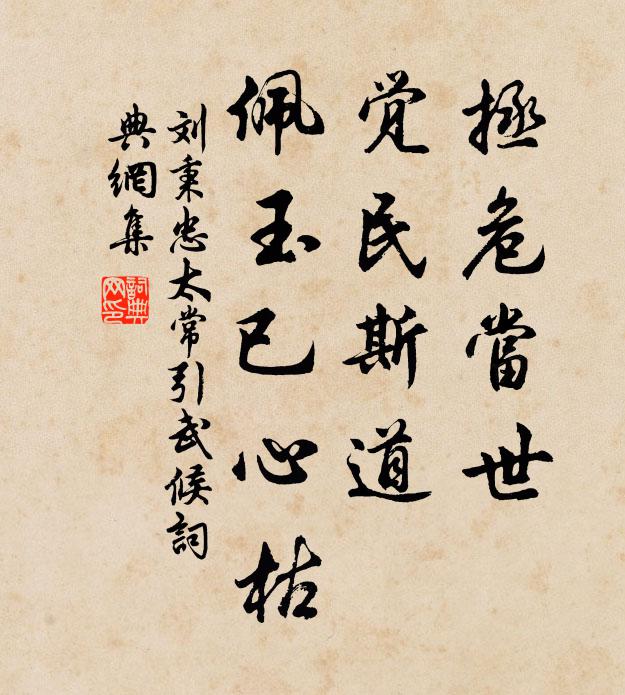 拯危當世
觉民斯道
佩玉已心枯
刘秉忠太常引武候詞
典網集
詞典网印